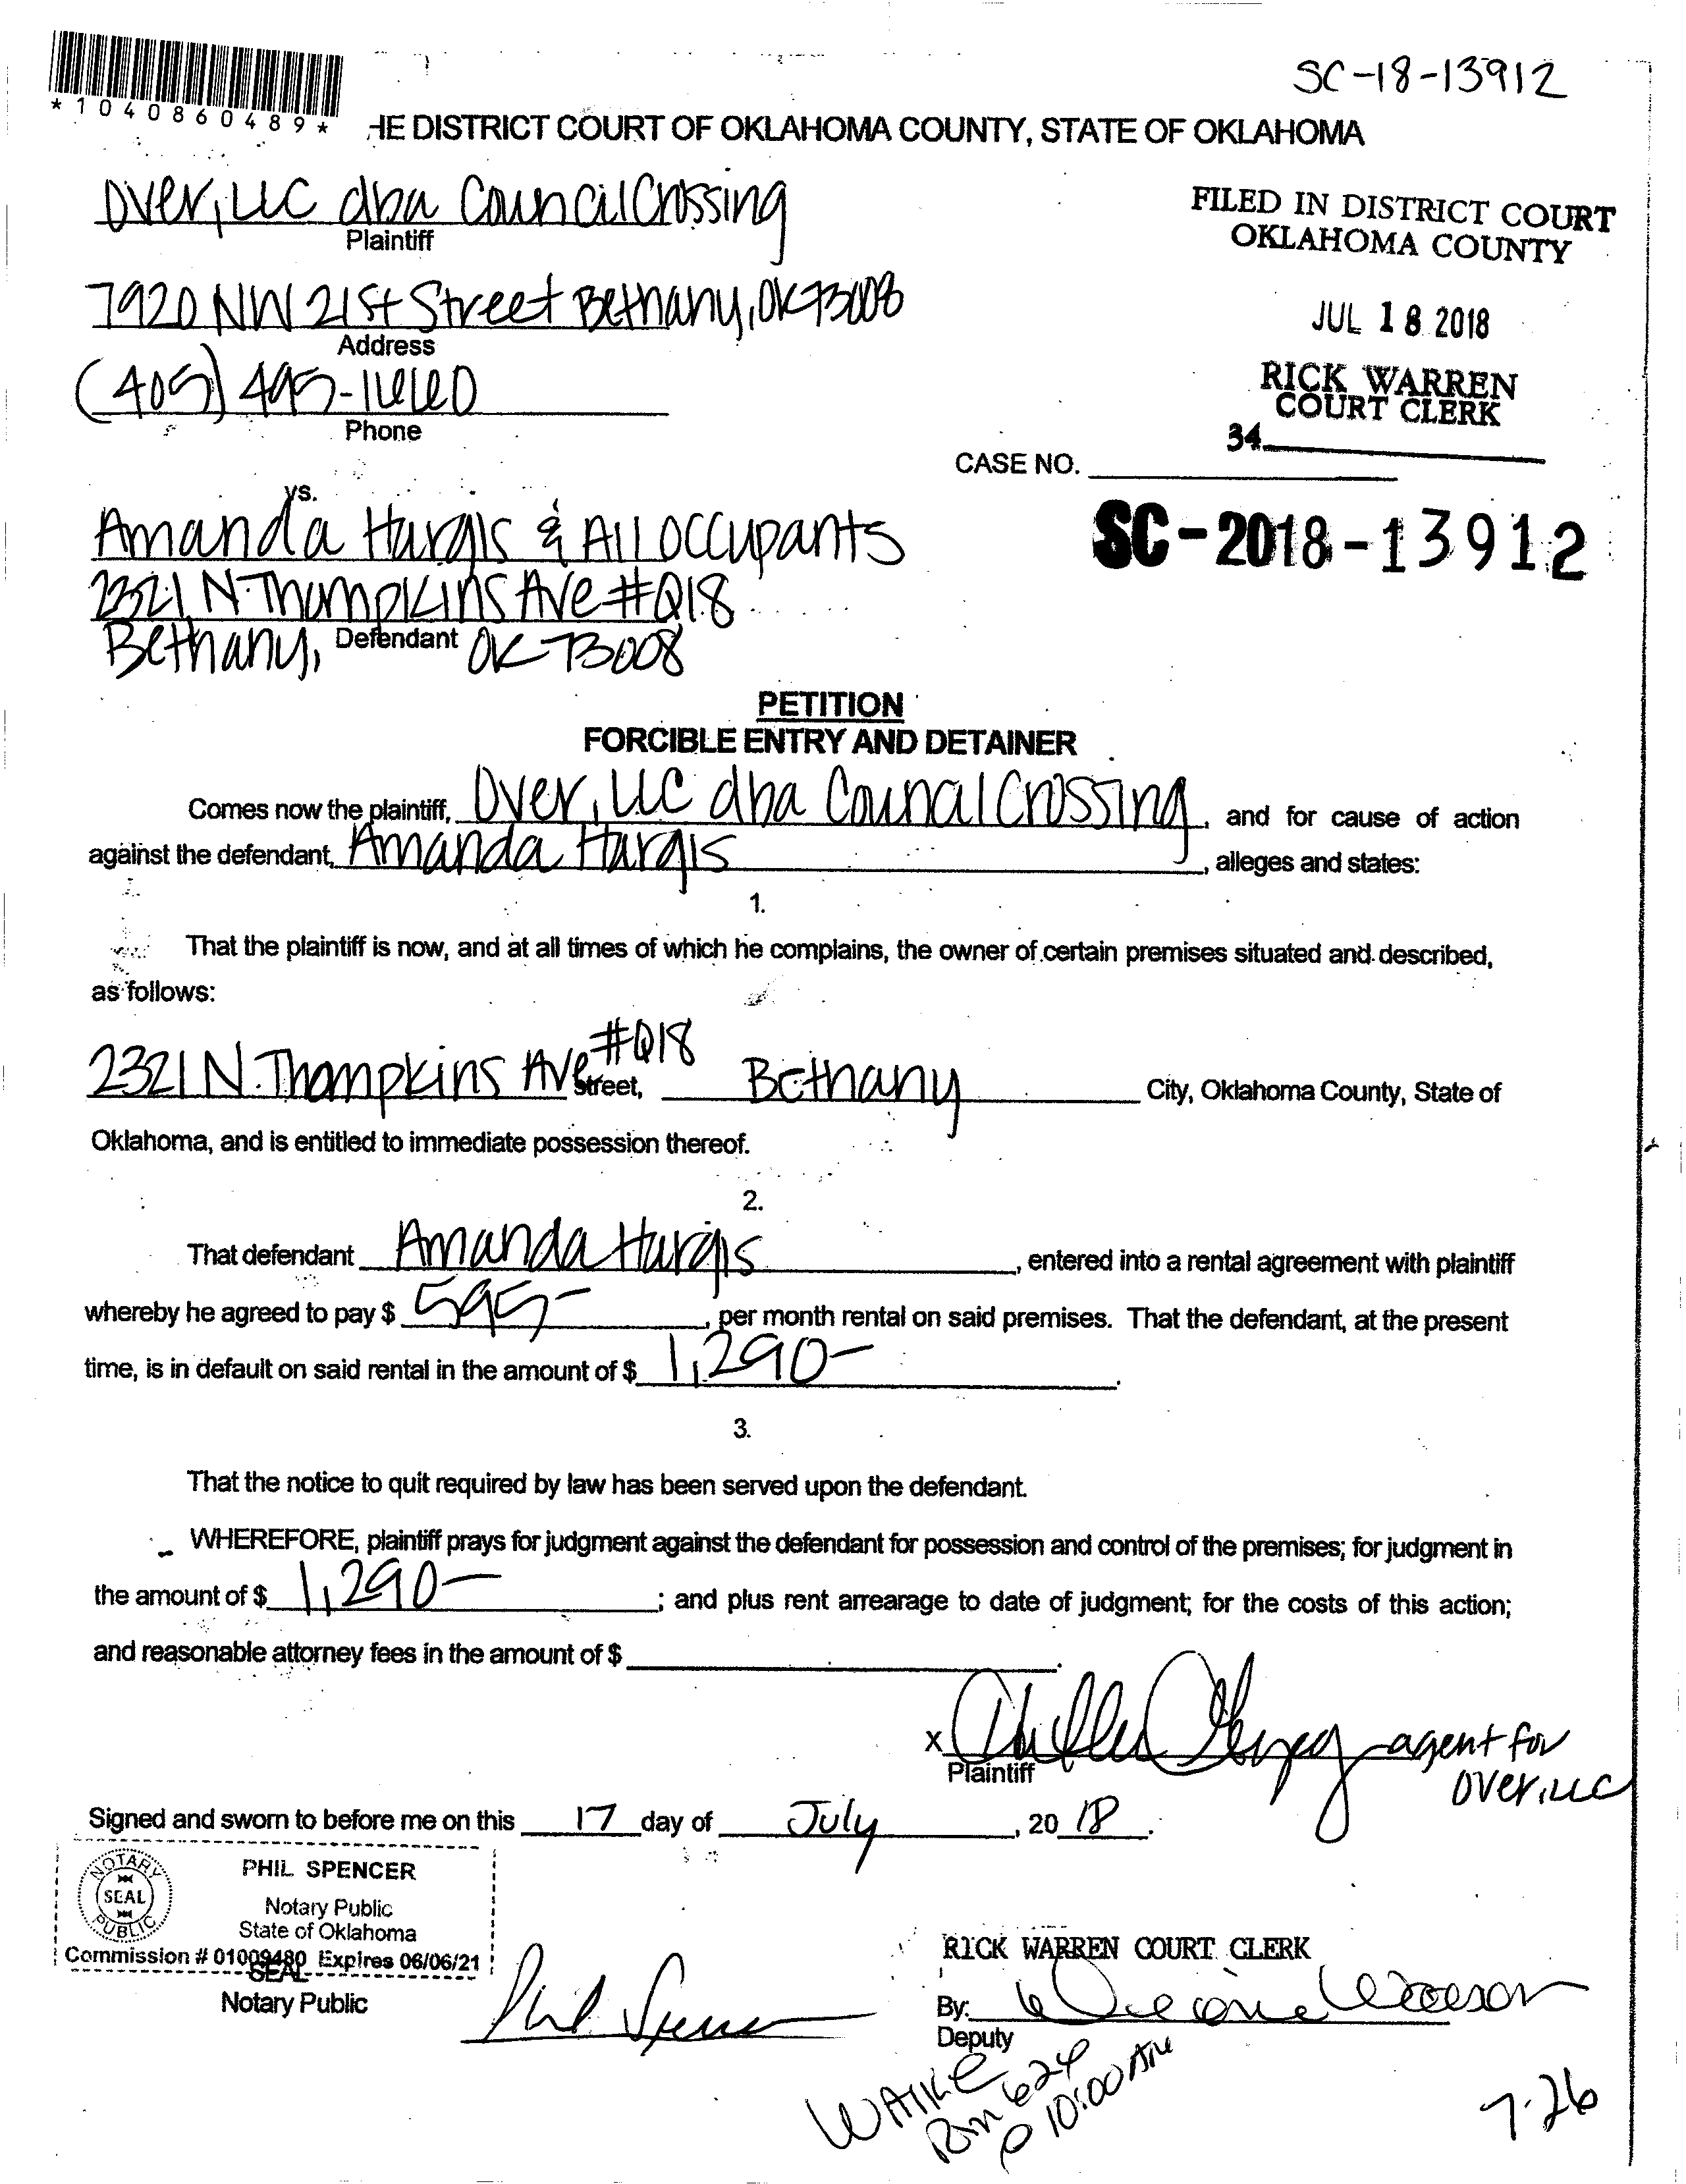 SC-18-13912
*1040860489*
HE DISTRICT COURT OF OKLAHOMA COUNTY, STATE OF OKLAHOMA
Over, LLC dba Council Crossing
Plaintiff
FILED IN DISTRICT COURT
OKLAHOMA COUNTY
7920 NW 21st Street Bethany, OK 73008
Address
JUL 18 2018
(405) 495-1660
Phone
RICK WARREN
COURT CLERK
34
CASE NO.
vs.
Amanda Hargis & All occupants
SC-2018-13912
2321 N. Thompkins Ave #Q18
Bethany, Defendant OK 73008
PETITION
FORCIBLE ENTRY AND DETAINER
Comes now the plaintiff, Over, LLC dba Council Crossing, and for cause of action
against the defendant, Amanda Hargis, alleges and states:
1.
That the plaintiff is now, and at all times of which he complains, the owner of certain premises situated and described,
as follows:
2321 N. Thompkins Ave #Q18 Street, Bethany City, Oklahoma County, State of
Oklahoma, and is entitled to immediate possession thereof.
2.
That defendant Amanda Hargis, entered into a rental agreement with plaintiff
whereby he agreed to pay $ 595-, per month rental on said premises. That the defendant, at the present
time, is in default on said rental in the amount of $ 1,290-.
3.
That the notice to quit required by law has been served upon the defendant.
WHEREFORE, plaintiff prays for judgment against the defendant for possession and control of the premises; for judgment in
the amount of $ 1,290-; and plus rent arrearage to date of judgment; for the costs of this action;
and reasonable attorney fees in the amount of $.
X agent for
Plaintiff Over, LLC
Signed and sworn to before me on this 17 day of July, 20 18.
NOTARY
SEAL
PUBLIC
PHIL SPENCER
Notary Public
State of Oklahoma
Commission # 01009480 Expires 06/06/21
SEAL
Notary Public
Phil Spencer
RICK WARREN COURT CLERK
By:
Deputy
Rm 624
@ 10:00 AM
7-26